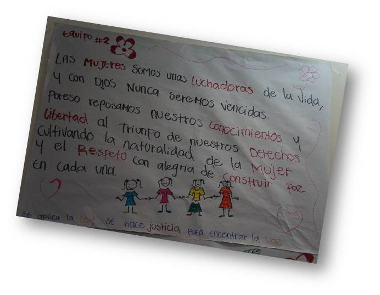 Equipo #2
Las mujeres somos unas luchadoras de la vida,
y con Dios nunca seremos vencidas
por eso reposamos nuestros conocimientos y
libertad al triunfo de nuestros Derechos
cultivando la naturalidad de la Mujer
y el Respeto con alegria de Construir Paz
en cada una.
se aplica la se hace justicia para encontrar la